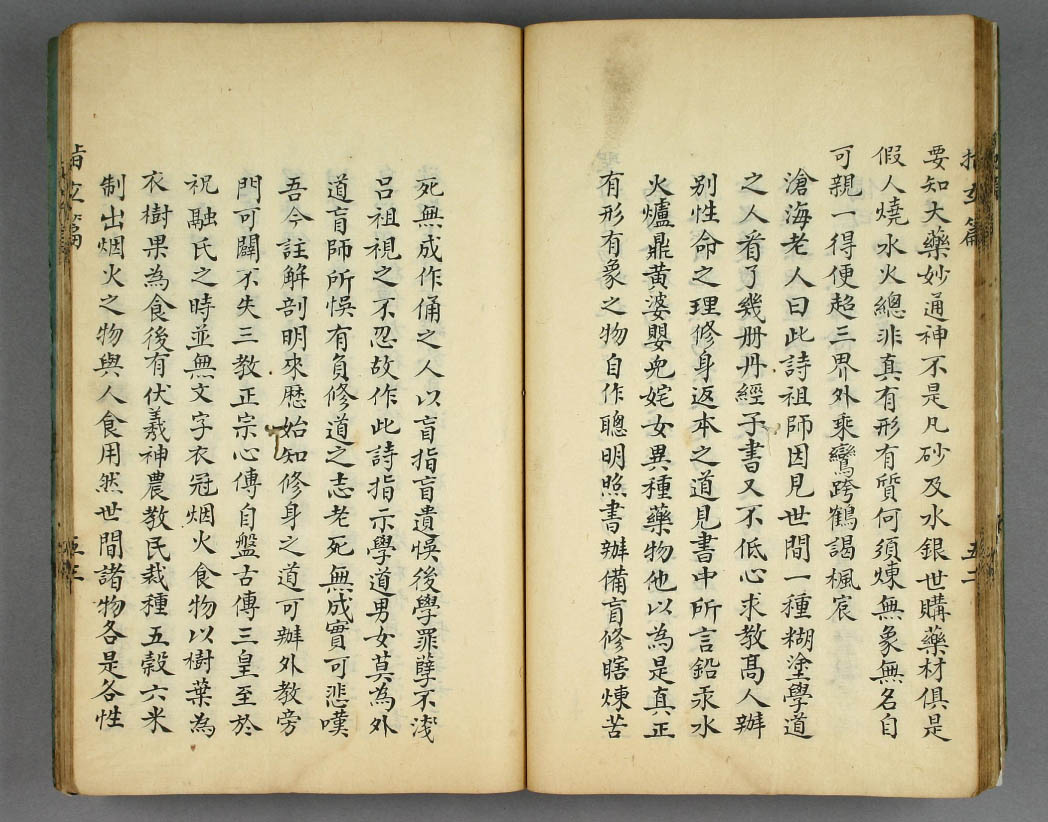 指玄篇
五二
要知大藥妙通神不是凡砂及水銀世購藥材俱是
假人燒水火總非真有形有質何須煉無象無名自
可親一得便超三界外乘鸞跨鶴謁楓宸
滄海老人曰此詩祖師因見世間一種糊塗學道
之人看了幾册丹經子書又不低心求教髙人辦
别性命之理修身返本之道見書中所言鉛汞水
火爐鼎黄婆嬰兒姹女異種藥物他以為是真正
有形有象之物自作聰明照書辦備盲修瞎煉苦
死無成作俑之人以盲指盲遺悞後學罪孽不淺
吕祖視之不忍故作此詩指示學道男女莫為外
道盲師所悞有負修道之志老死無成實可悲嘆
吾今註解剖明來歷始知修身之道可辦外教旁
門可闢不失三教正宗心傳自盤古傳三皇至於
祝融氏之時並無文字衣冠烟火食物以樹葉為
衣樹果為食後有伏羲神農教民栽種五榖六米
制出烟火之物與人食用然世間諸物各是各性
指玄篇
五三